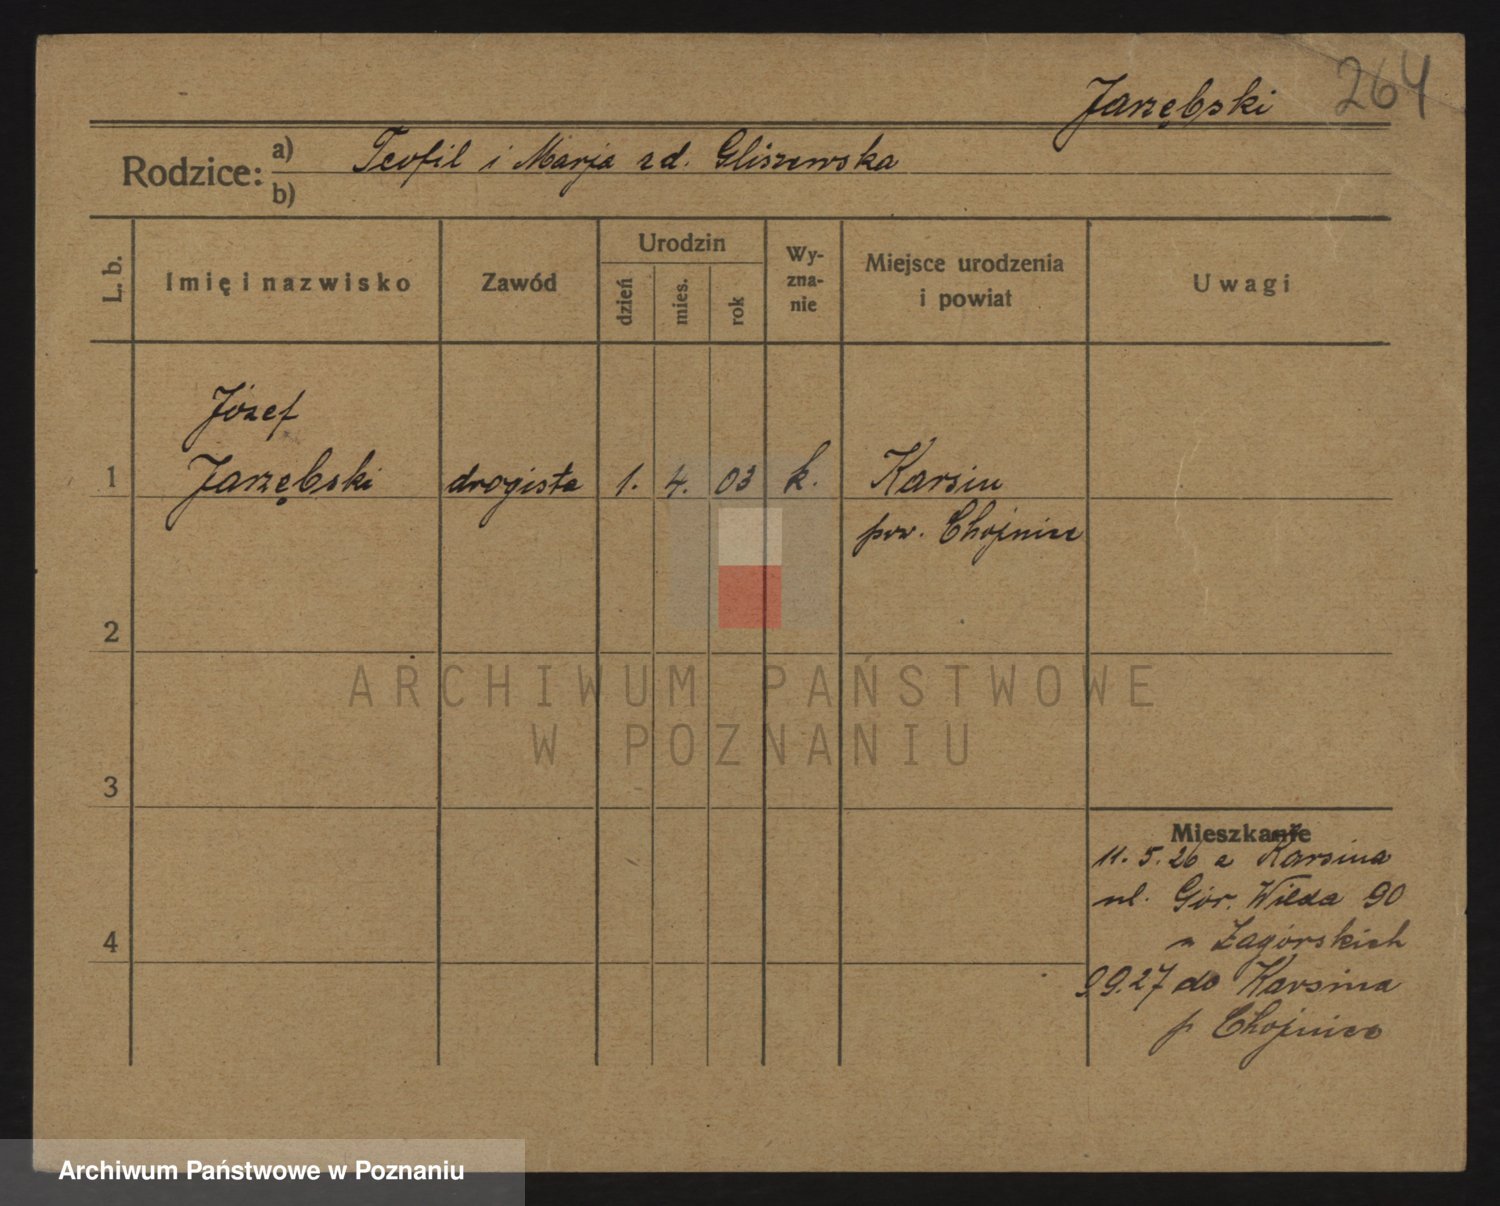 264
Jarzębski
Rodzice: a) Teofil i Marja zd. Gliszewska
b)
L. b.
Imię i nazwisko
Zawód
Urodzin
dzień
mies.
rok
Wy-
zna-
nie
Miejsce urodzenia
i powiat
Uwagi
Józef
1 Jarzębski drogista 1. 4. 03 k. Karsin
pow. Chojnice
2
3
4
Mieszkanie
11. 5. 26 z Karsina
ul. Gór. Wilda 90
u Zagórskich
9.9.27 do Karsina
p Chojnice
ARCHIWUM PAŃSTWOWE
W POZNANIU
Archiwum Państwowe w Poznaniu